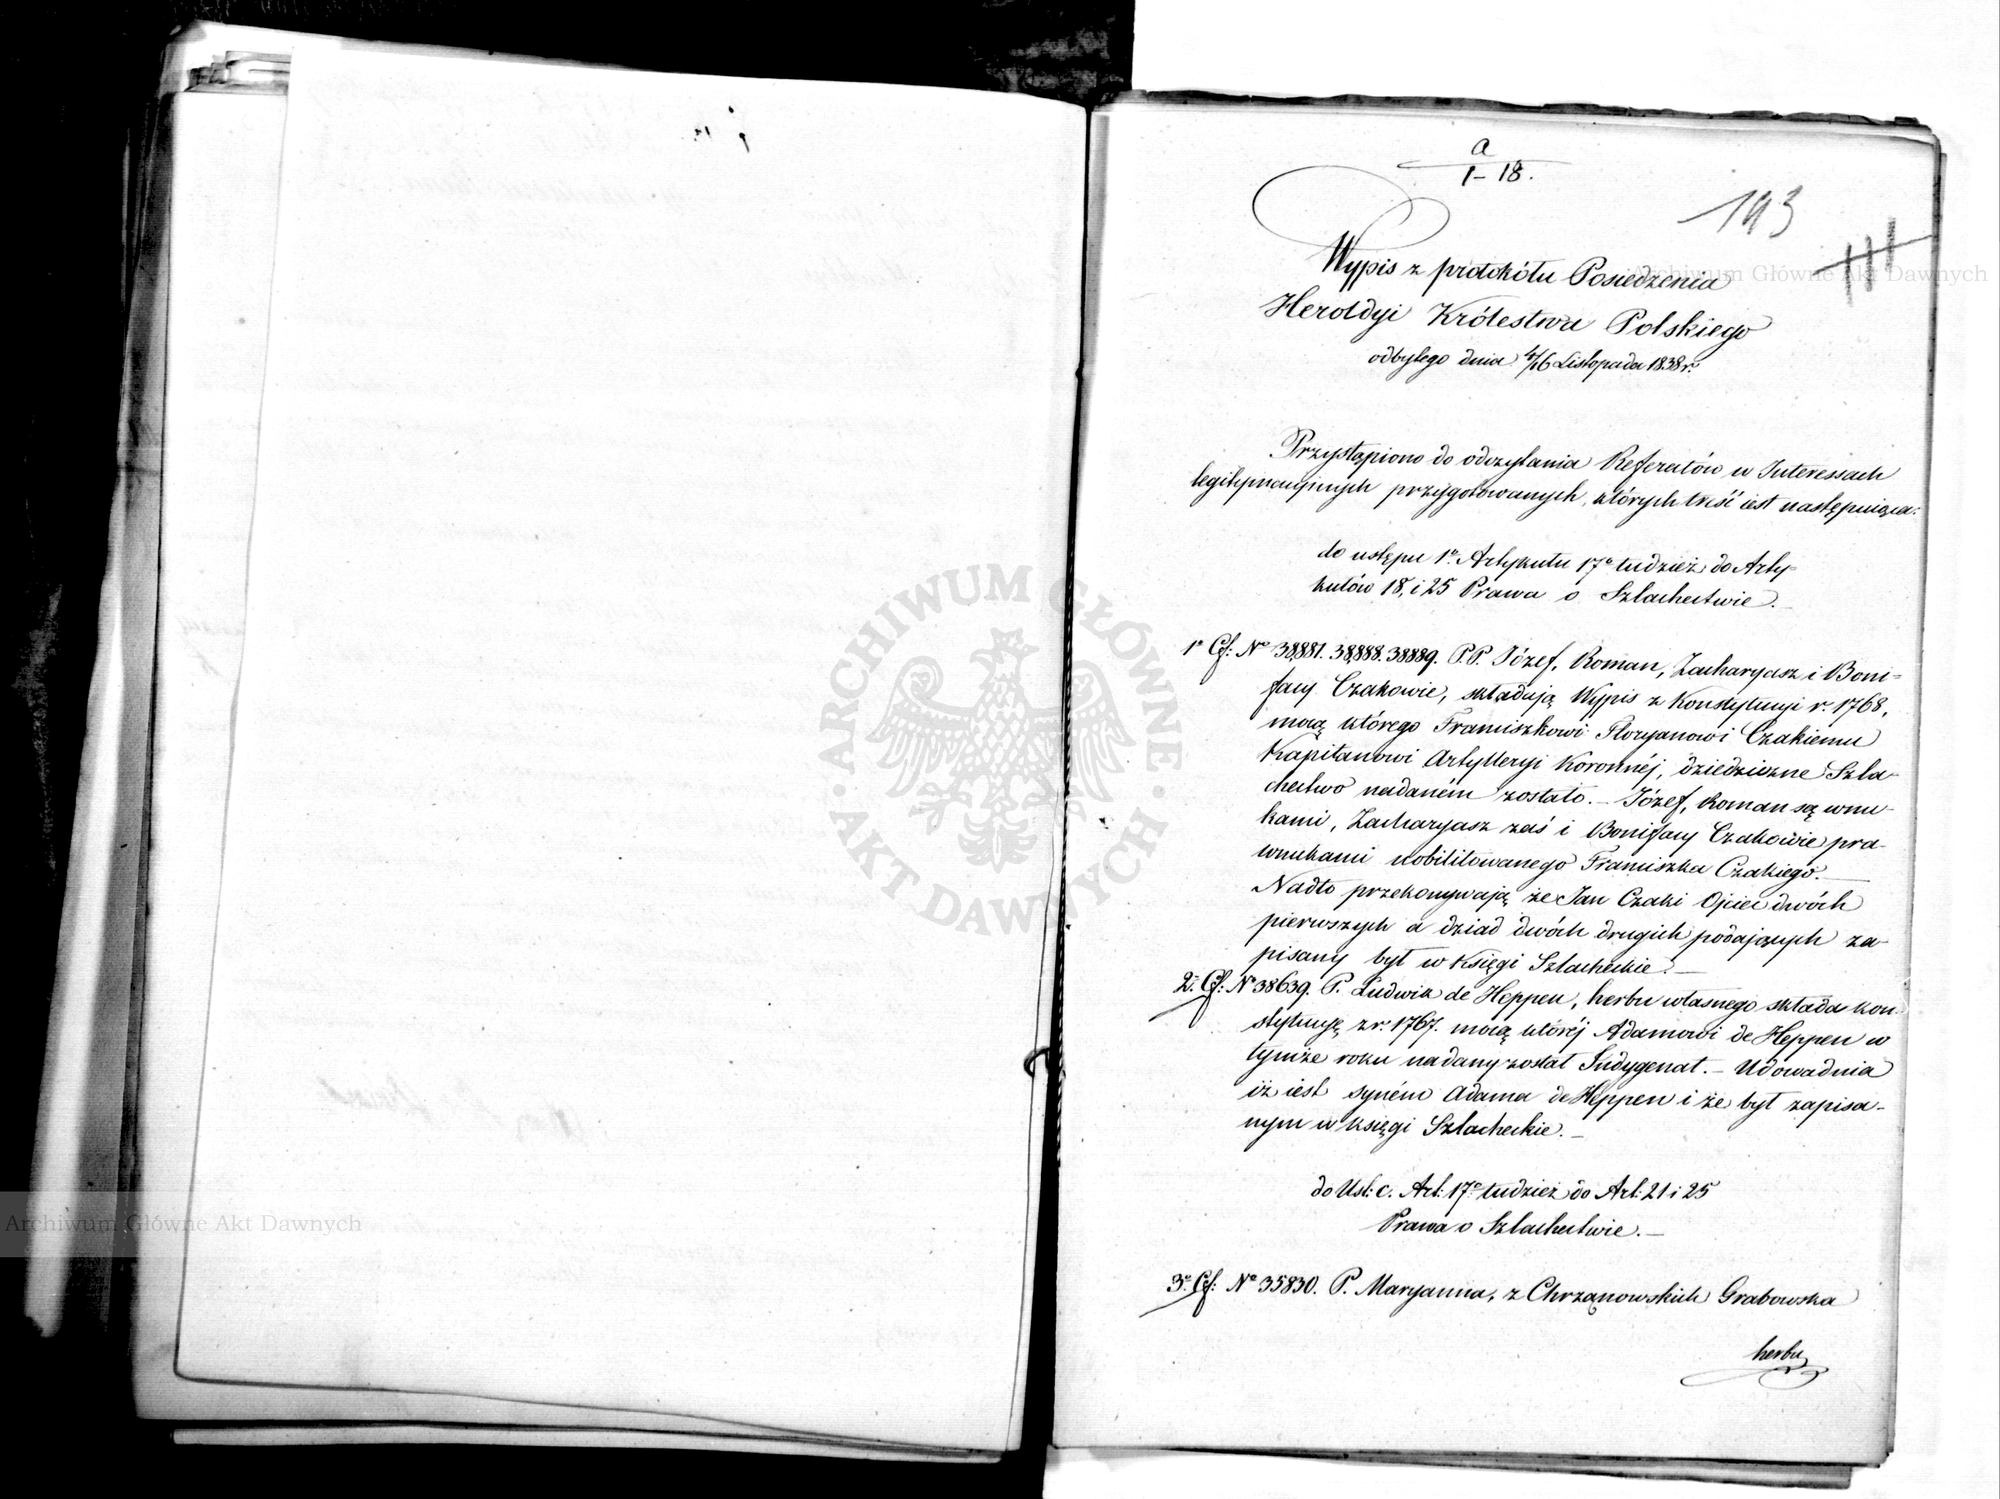 a
1-18.
193
Wypis z protokółu Posiedzenia
Heroldyi Królestwa Polskiego
odbytego dnia 4/16 Listopada 1838 r.
Przystąpiono do odczytania Referatów w Interessach
legitymacyjnych przygotowanych, których treść iest następuiąca:
do ustępu 1o. Artykułu 17o tudzież do Arty-
kułów 18, i 25 Prawa o Szlachectwie. _
1o Cf: No 38,881. 38,888. 38889. P.P. Józef, Roman, Zacharyasz i Boni=
facy Czakowie, składają Wypis z Konstytucyi r. 1768,
mocą którego Franciszkowi Floryanowi Czakiemu
Kapitanowi Artylleryi Koronnéj, dziedziczne Szla-
chectwo nadaném zostało. _ Józef, Roman są wnu-
kami, Zacharyasz zaś i Bonifacy Czakowie pra-
wnukami nobilitowanego Franciszka Czakiego. _
Nadto przekonywają że Jan Czaki Ojciec dwóch
pierwszych a dziad dwóch drugich podających za-
pisany był w Księgi Szlacheckie. _
2o. Cf: No 38639. P. Ludwik de Heppen, herbu własnego składa kon-
stytucyę z r. 1767. mocą któréj Adamowi de Heppen w
tymże roku nadany został Indygenat. _ Udowadnia
iż iest synem Adama de Heppen i że był zapisa-
nym w księgi Szlacheckie. _
do Ust: c. Art: 17o tudzież do Art: 21 i 25
Prawa o Szlachectwie. _
3o. Cf: No 35830. P. Maryanna, z Chrzanowskich Grabowska
herbu
Archiwum Główne Akt Dawnych
ARCHIWUM GŁÓWNE · AKT DAWNYCH ·
Archiwum Główne Akt Dawnych